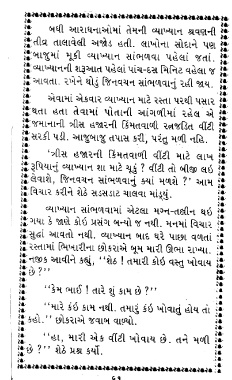 બધી આરાધનાઓમાં તેમની વ્યાખ્યાન શ્રવણની
તીવ્ર તાલાવેલી અજોડ હતી. લાખોના સોદાને પણ
બાજુમાં મૂકી વ્યાખ્યાન સાંભળવા પહેલાં જતાં.
વ્યાખ્યાનની શરૂઆત પહેલાં પાંચ-દસ મિનિટ વહેલા જ
આવતા. રખેને થોડું જિનવચન સાંભળવાનું રહી જાય.
એવામાં એકવાર વ્યાખ્યાન માટે રસ્તા પરથી પસાર
થતા હતા તેવામાં પોતાની આંગળીમાં રહેલ એ
જમાનાની ત્રીસ હજારની કિંમતવાળી રત્નજડિત વીંટી
સરકી પડી. આજુબાજુ તપાસ કરી, પરંતુ મળી નહિ.
'ત્રીસ હજારની કિંમતવાળી વીંટી માટે લાખ
રૂપિયાનું વ્યાખ્યાન શા માટે ચૂકું ? વીંટી તો બીજી લઇ
લેવાશે, જિનવચન સાંભળવાનું ક્યાં મળશે ?' આમ
વિચાર કરીને શેઠે સડસડાટ ચાલવા માંડ્યું.
વ્યાખ્યાન સાંભળવામાં એટલા મગ્ન-તલ્લીન થઇ
ગયા કે જાણે કોઇ પ્રસંગ બન્યો જ નથી. મનમાં વિચાર
સુદ્ધાં આવતો નથી. વ્યાખ્યાન બાદ ઘરે પાછા વળતાં
રસ્તામાં ભિખારીના છોકરાએ બૂમ મારી ઊભા રાખ્યા.
નજીક આવીને કહ્યું, "શેઠ ! તમારી કોઇ વસ્તુ ખોવાય
છે ?"
"કેમ ભાઈ ! તારે શું કામ છે ?"
"મારે કંઇ કામ નથી. તમારું કંઇ ખોવાતું હોય તો
કહો." છોકરાએ જવાબ વાળ્યો.
"હા, મારી એક વીંટી ખોવાય છે. તને મળી
છે ?" શેઠે પ્રશ્ન કર્યો.